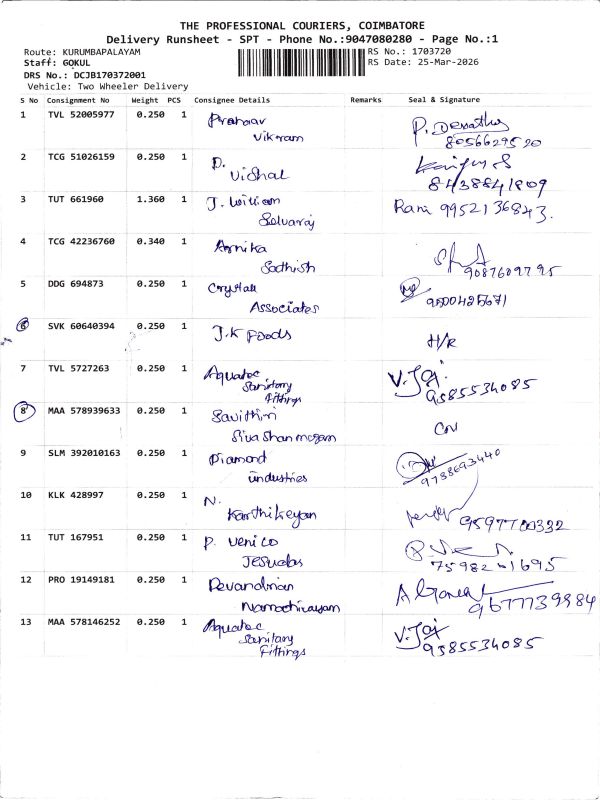 THE PROFESSIONAL COURIERS, COIMBATORE
Delivery Runsheet - SPT - Phone No.:9047080280 - Page No.:1
Route: KURUMBAPALAYAM
RS No.: 1703720
Staff: GOKUL
RS Date: 25-Mar-2026
DRS No.: DCJB170372001
Vehicle: Two Wheeler Delivery
S No Consignment No Weight PCS Consignee Details Remarks Seal & Signature
1 TVL 52005977 0.250 1
Vikram
8056629520
2 TCG 51026159 0.250 1 D.
Vishal
8438841809
3 TUT 661960 1.360 1 J. William Rani 9952136843.
Selvaraj
4 TCG 42236760 0.340 1 Arnika
Sathish 9087609795
5 DDG 694873 0.250 1 Crystall
Associates
6 SVK 60640394 0.250 1 J.K Foods
H/R
7 TVL 5727263 0.250 1 Aquatec V. Jai
Sanitary 9385534085
Fittings
8 MAA 578939633 0.250 1 Savithiri
Siva Shanmugam
9 SLM 392010163 0.250 1 Diamond
industries 9788693440
10 KLK 428997 0.250 1 N.
Karthikeyan 9597700332
11 TUT 167951 0.250 1 P. Venico
Jesudas
12 PRO 19149181 0.250 1
9677739984
13 MAA 578146252 0.250 1 Aquatec V. Jai
Sanitary 9385534085
Fittings